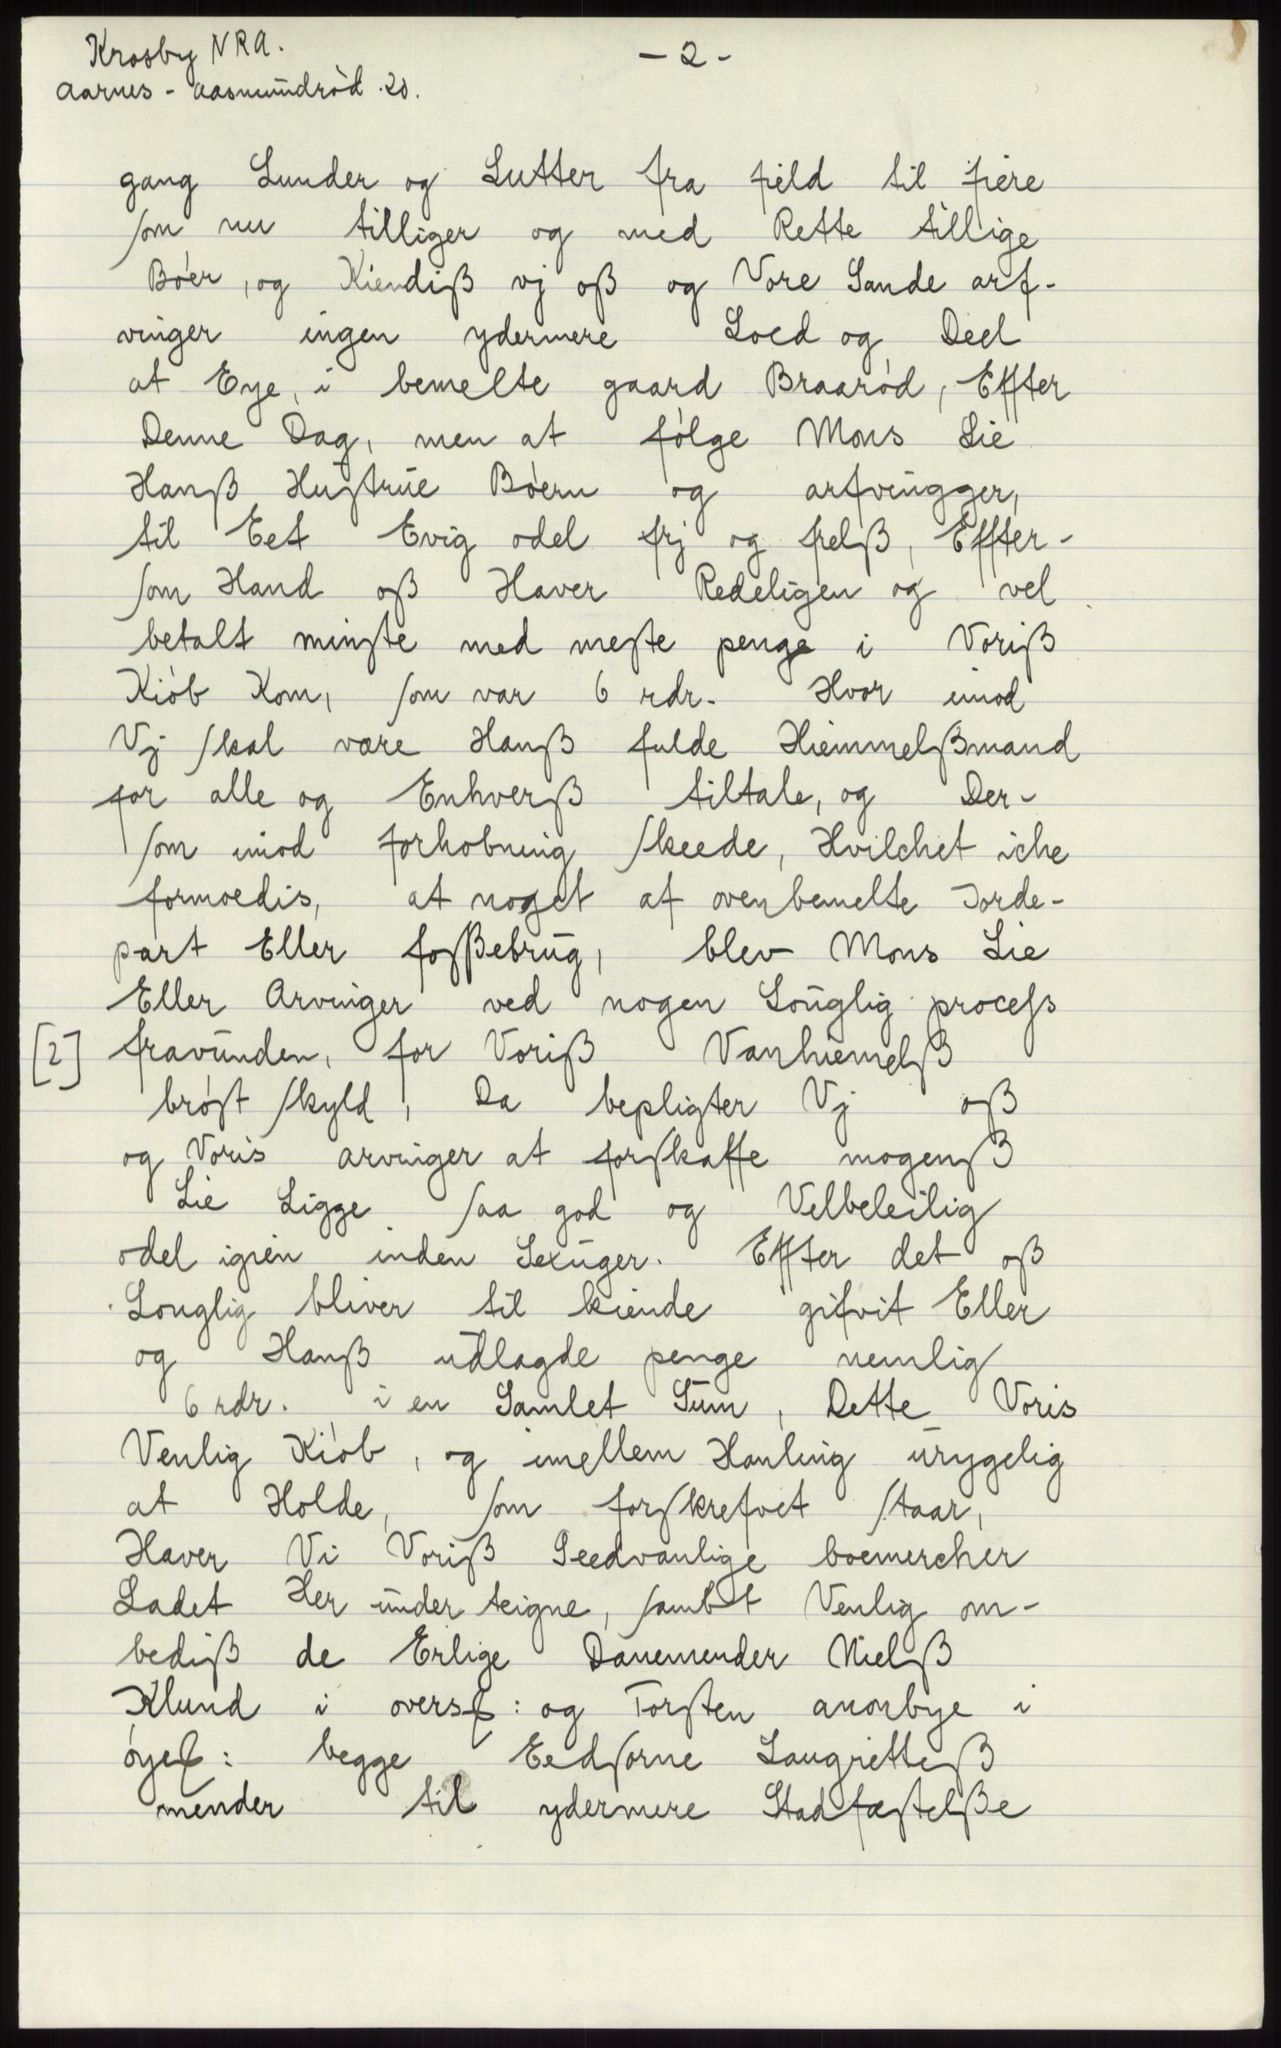 Krosby NRA.
- 2 -
Aarnes - Aasmundrød .20.
gang Lunder og Lutter fra field til fiere
som nu tilliger og med Rette tillige
Bóer, og Kiendiß vj oß og Vore Sande arf-
vinger ingen ydermere Loed og Deel
at Eye, i bemelte gaard Braarød, Effter
Denne Dag, men at følge Mons Lie
Hanß Hustrue Bóern og arfvingger,
til Eet Evig odel frj og frelß, Effter-
som Hand oß Haver Redeligen og vel
betalt minste med meste penge i Voriß
Kiób Kom, som var 6 rdr. Hvor imod
Vj skal være Hanß fulde Hiemmelßmand
for alle og Enhverß tiltale, og Der-
som imod forhobning skeede, Hvilchet iche
formoedis, at noget af ovenbemelte Jorde-
part Eller foßebrug, blev Mons Lie
Eller Arvinger ved nogen Louglig process
[2] fravunden, for Voriß Vanhiemelß
brøst skyld, Da bepligter Vj oß
og Voris arvinger at forskaffe mogenß
Lie Ligge saa god og Velbeleilig
odel igien inden Sexuger. Effter det oß
Louglig bliver til kiende gifvit Eller
og Hanß udlagde penge nemlig
6 rdr. i en Samlet Sum, Dette Voris
Venlig Kiób, og imellem Hanling urygelig
at Holde, som forskrefvet staar,
Haver Vi Voriß Seedvanlige boemercher
Ladet Her under teigne, sambt Venlig om-
bediß de Erlige Danemender Nielß
Klund i overs: og Torsten anonbye i
øyes: begge Eedsorne Laugretteß
mender til ydermere Stadfæstelße